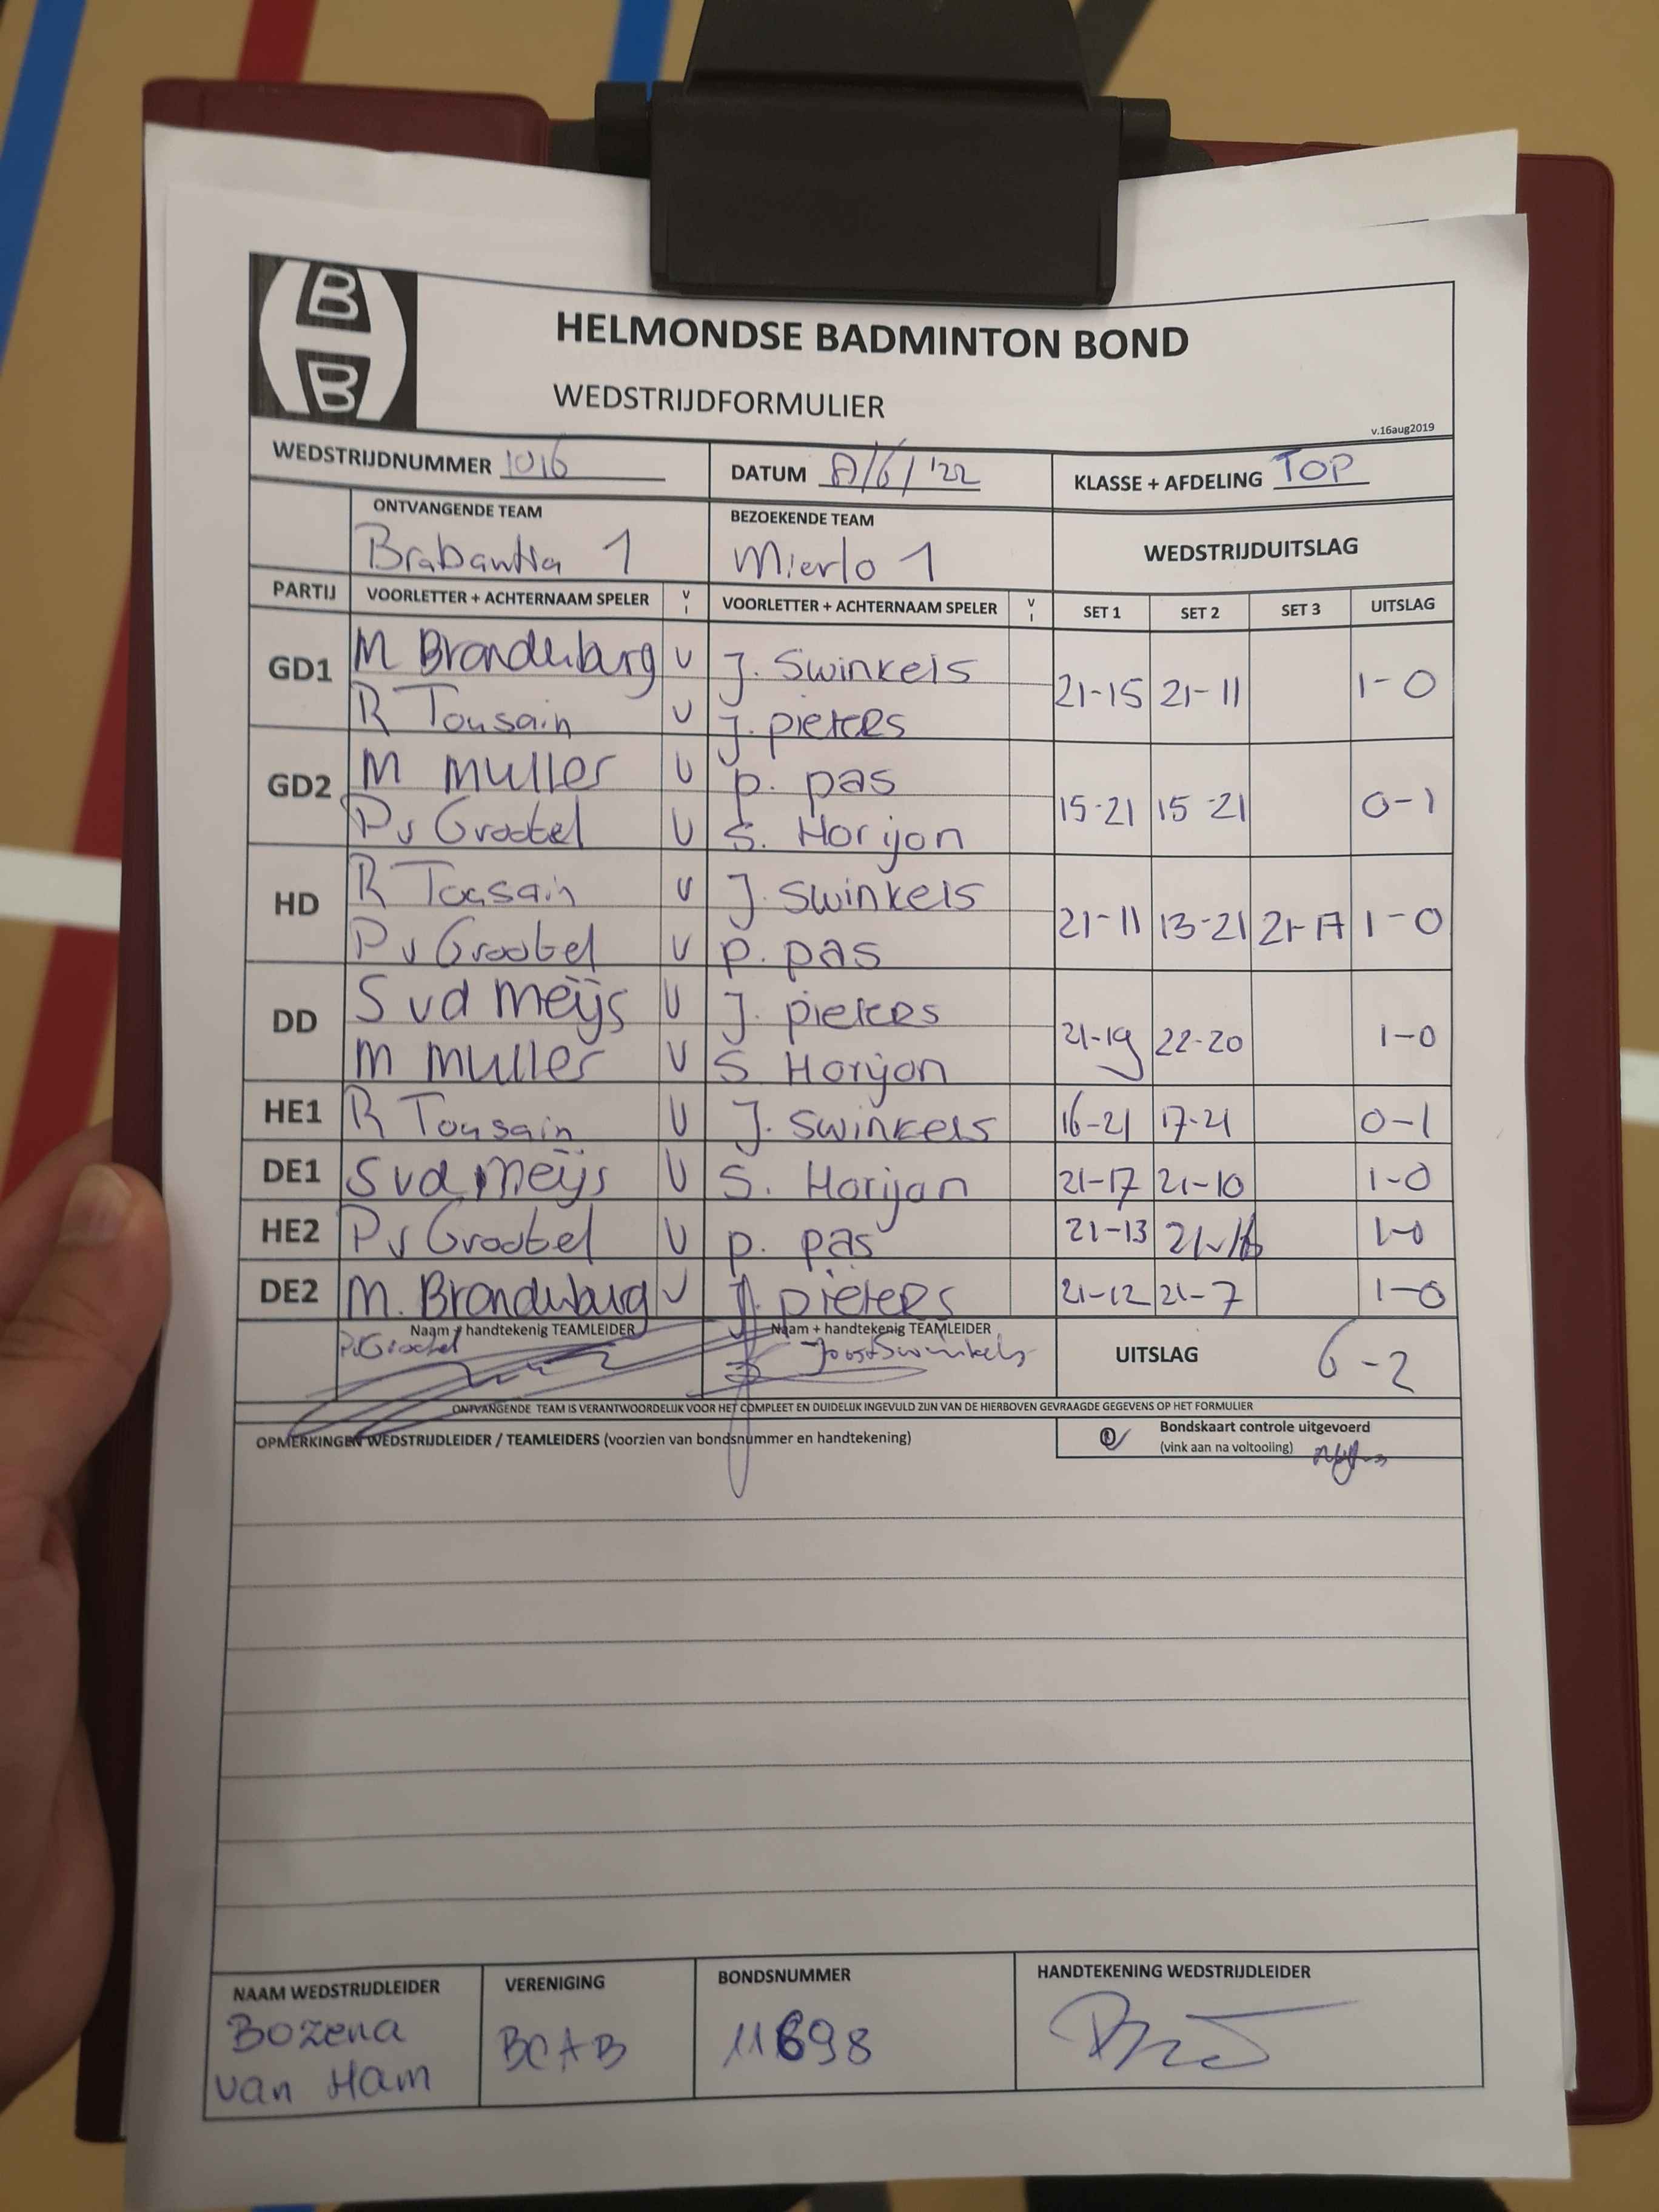 B
B
HELMONDSE BADMINTON BOND
WEDSTRIJDFORMULIER
v.16aug2019
WEDSTRIJDNUMMER 1016 DATUM /6/'22 KLASSE + AFDELING TOP
ONTVANGENDE TEAM BEZOEKENDE TEAM WEDSTRIJDUITSLAG
Brabantia 1 Mierlo 1
PARTIJ VOORLETTER + ACHTERNAAM SPELER V I VOORLETTER + ACHTERNAAM SPELER V I SET 1 SET 2 SET 3 UITSLAG
GD1 M Brandenburg v J. Swinkels 21-15 21-11 1-0
R Tousain v J. pieters
GD2 M muller v p. pas 15-21 15-21 0-1
P v Grootel v S. Horijon
HD R Tousain v J. Swinkels 21-11 13-21 21-17 1-0
P v Grootel v p. pas
DD S vd meijs v J. pieters 21-19 22-20 1-0
m muller v S Horijon
HE1 R Tousain v J. Swinkels 16-21 17-21 0-1
DE1 S vd meijs v S. Horijon 21-17 21-10 1-0
HE2 P v Grootel v p. pas 21-13 21-16 1-0
DE2 M. Brandenburg v J. pieters 21-12 21-7 1-0
Naam + handtekenig TEAMLEIDER Naam + handtekenig TEAMLEIDER UITSLAG 6-2
P.v Grootel Joost Swinkels
ONTVANGENDE TEAM IS VERANTWOORDELIJK VOOR HET COMPLEET EN DUIDELIJK INGEVULD ZIJN VAN DE HIERBOVEN GEVRAAGDE GEGEVENS OP HET FORMULIER
OPMERKINGEN WEDSTRIJDLEIDER / TEAMLEIDERS (voorzien van bondsnummer en handtekening) Bondskaart controle uitgevoerd
(vink aan na voltooiing)
NAAM WEDSTRIJDLEIDER VERENIGING BONDSNUMMER HANDTEKENING WEDSTRIJDLEIDER
Bozena BCAB 11698
van Ham